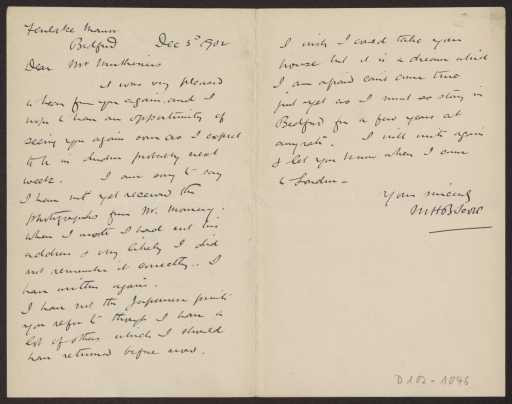 Fenlake Manor
Bedford Dec 5th 1902
Dear Mr Muthesius
It was very pleased
to hear from you again and I
hope to have an opportunity of
seeing you again soon as I expect
to be in London probably next
week. I am sorry to say
I have not yet received the
photographs from Mr.
When I wrote I had not his
address & very likely I did
not remember it correctly. I
have written again.
I have not the Japanese prints
you refer to though I have a
lot of others which I should
have returned before now.
I wish I could take your
house but it is a dream which
I am afraid can't come true
just yet as I must stay in
Bedford for a few years at
any rate. I will write again
& let you know when I come
to London -
Yours sincerely
MHBScott
D 102-1046